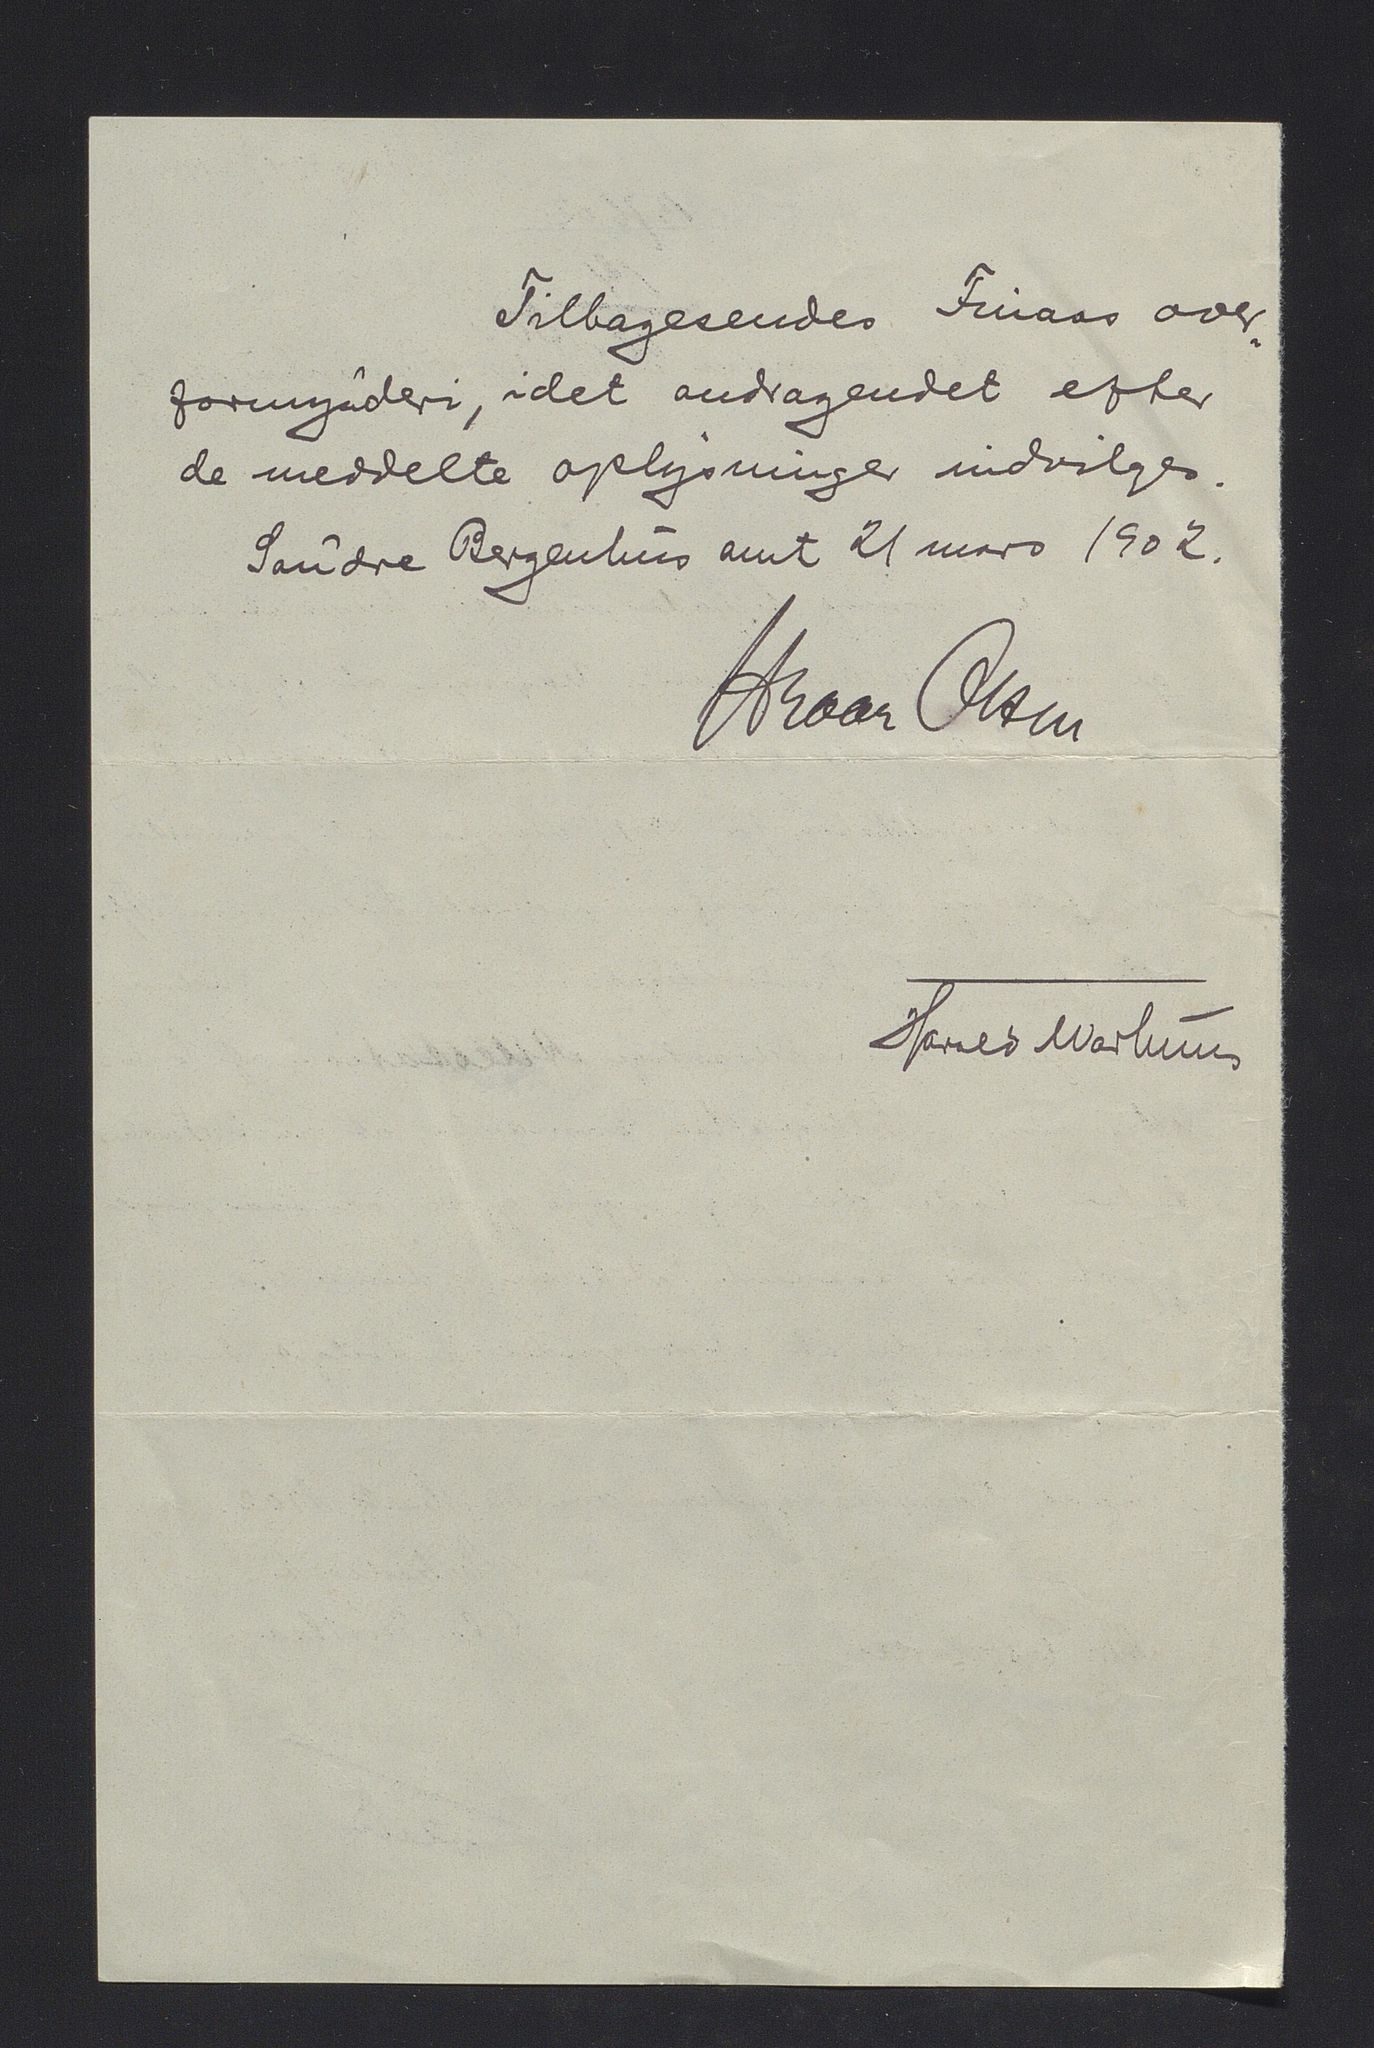 Tilbagesendes Finaas over-
formynderi, idet andragendet efter
de meddelte oplysninger indvilges.
Søndre Bergenhus amt 21 mars 1902.
Hroar Olsen
Harald Warhuus